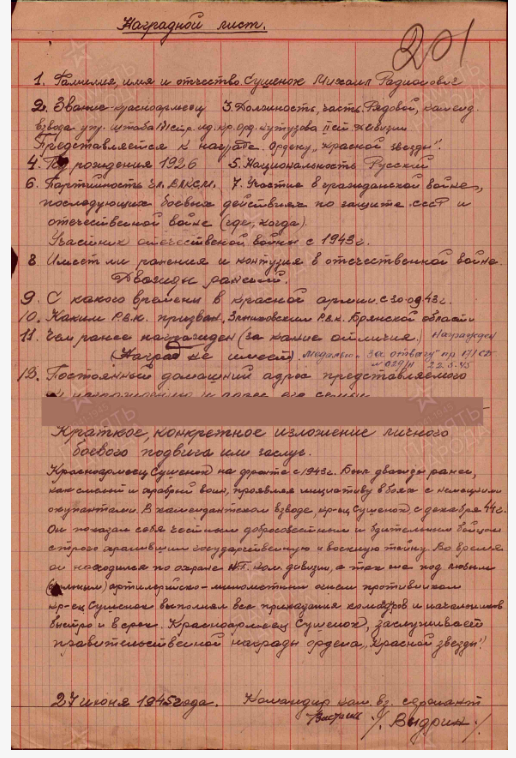 Наградной лист.
201
1. Фамилия, имя и отчество Сушенок Михаил Радионович
2. Звание красноармеец 3. Должность, часть Рядовой, коменд.
взвода упр. штаба 171 стр. ид. кр. орд. кутузова II ст. дивизии
Представляется к награде Ордену "Красной звезды".
4. Год рождения 1926 5. Национальность Русский
6. Партийность чл. ВЛКСМ. 7. Участие в гражданской войне,
последующих боевых действиях по защите СССР и
отечественной войне (где, когда)
Участник отечественной войны с 1943г.
8 Имеет ли ранения и контузия в отечественной войне.
Дважды ранений.
9. С какого времени в красной армии. с 30.09.43г.
10. Каким Р.В.К. призван, Злынковским Р.В.К. Брянской области
11. Чем ранее награжден (за какие отличия) Награжден
(Наград не имеет) Медалью "За отвагу" пр 171 СД
№ 029/н 22.5.45
12. Постоянный домашний адрес представляемого
Краткое, конкретное изложение личного
боевого подвига или заслуг.
Красноармеец Сушенок на фронте с 1943г. Был дважды ранен,
как смелый и храбрый воин, проявляя инициативу в боях с немецкими
окупантами. В комендантском взводе кр-ец Сушенок с декабря 44г.
Он показал себя честным добросовестным и бдительным бойцом
строго хранившим государственную и военную тайну. Во время
он находился по охране дивизии, а так же под любым
артилерийско-минометным огнем противника
кр-ец Сушенок выполнял все приказания командиров и начальников
быстро и в срок. Красноармеец Сушенок, заслуживает
правительственной награды ордена "Красной звезды".
27 июня 1945 года. Командир ком. вз. сержант
/Выдрин/